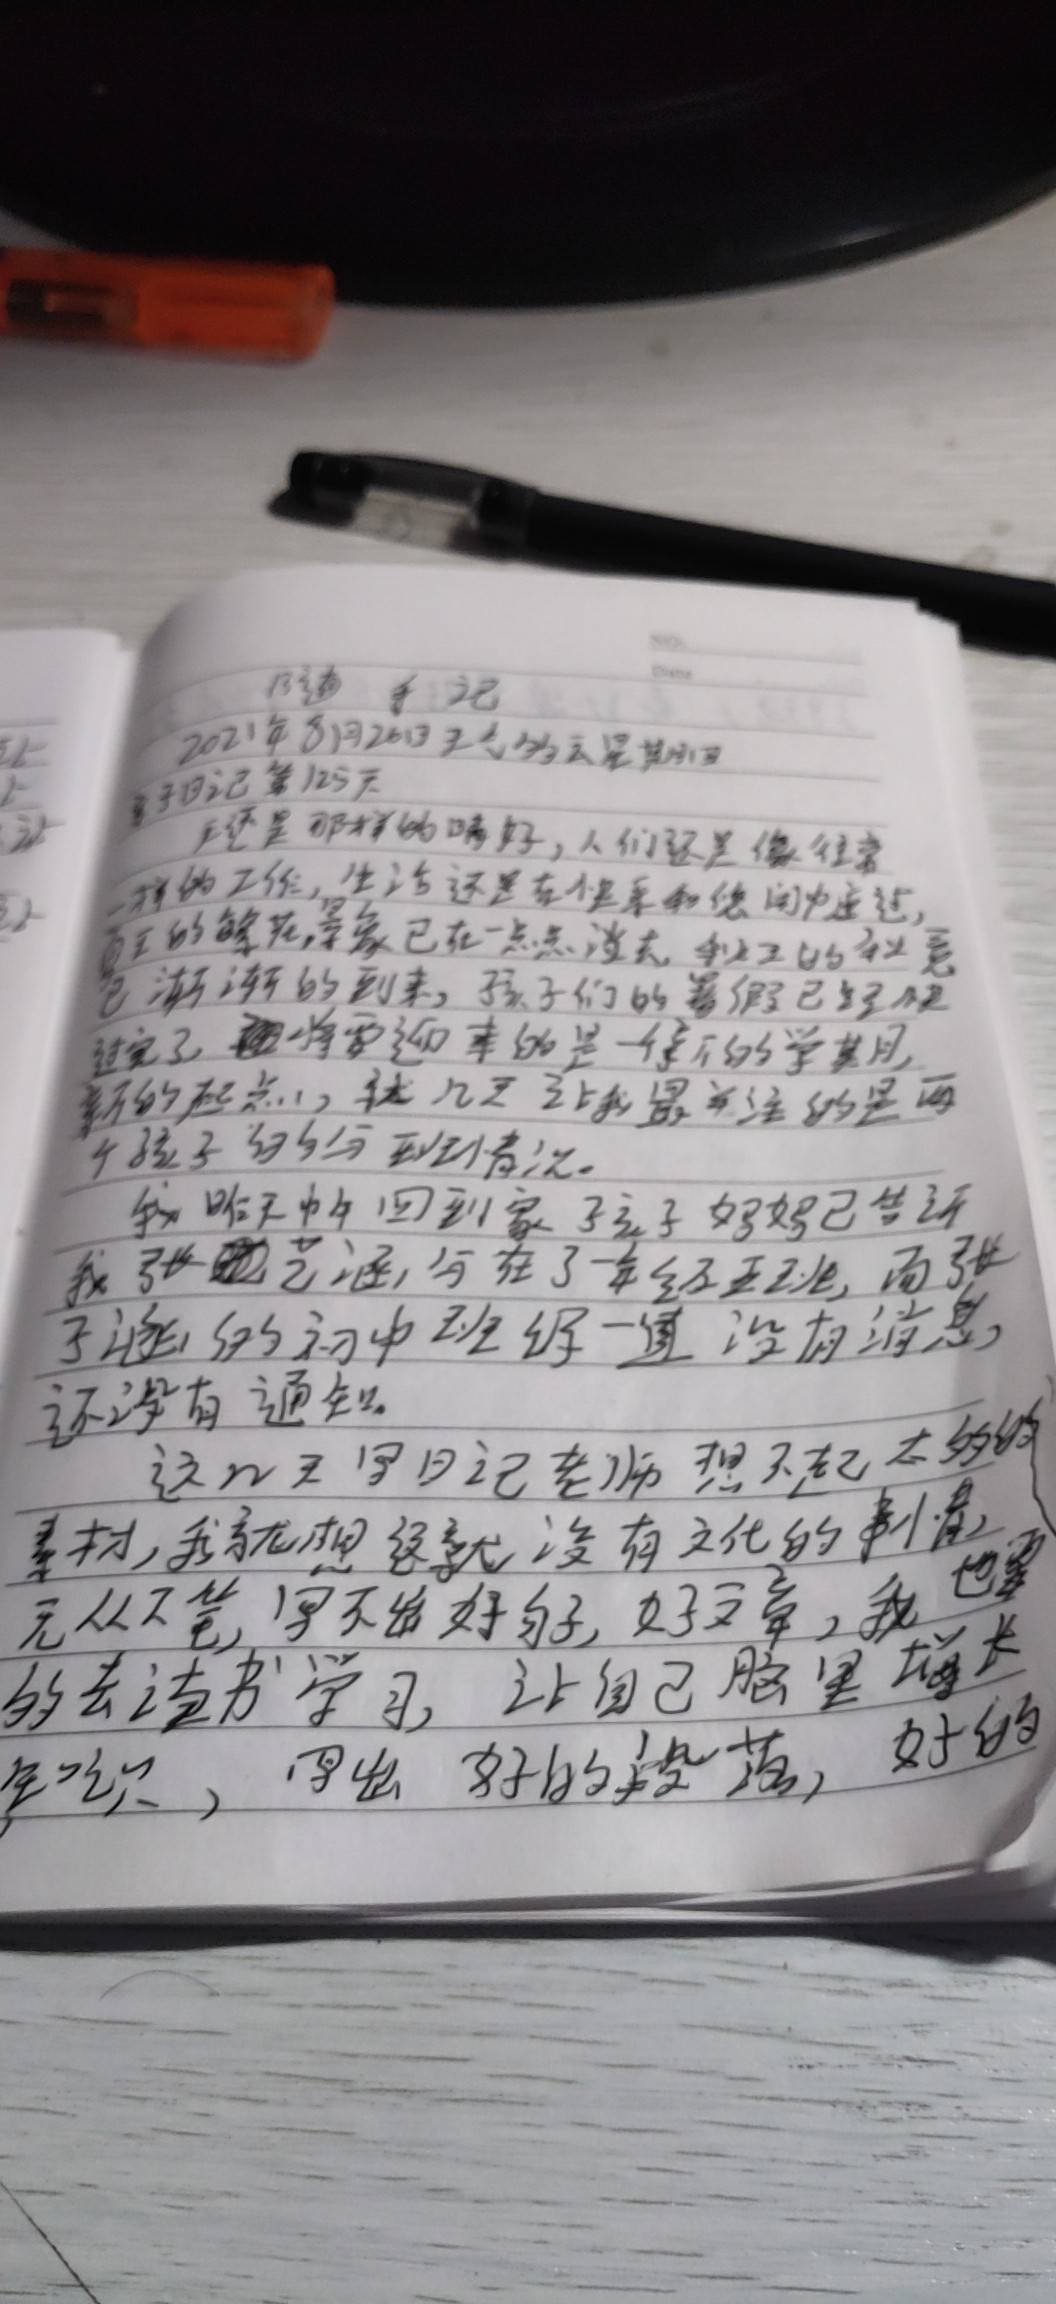 NO.
Date
随 手 记
2021年8月26日 天气多云星期四
亲子日记第125天
天还是那样的晴好，人们还是像往常
一样的工作，生活还是在忙累和悠闲中度过，
夏天的繁花景象已在一点点消去，秋天的秋意
已渐渐的到来，孩子们的暑假已经快
过完了，将要迎来的是一个新的学期，
新的起点，这几天让我最关注的是两
个孩子的分班情况。
我昨天中午回到家孩子妈妈已告诉
我张艺涵，分在了一年级五班，而张
子涵的初中班级一直没有消息，
还没有通知。
这几天写日记老师想不起太多的
素材，我就想这就没有文化的制
无从下笔，写不出好句子，好文章，我也要
的去读书学习，让自己脑里增长
知识，写出好的段落，好的